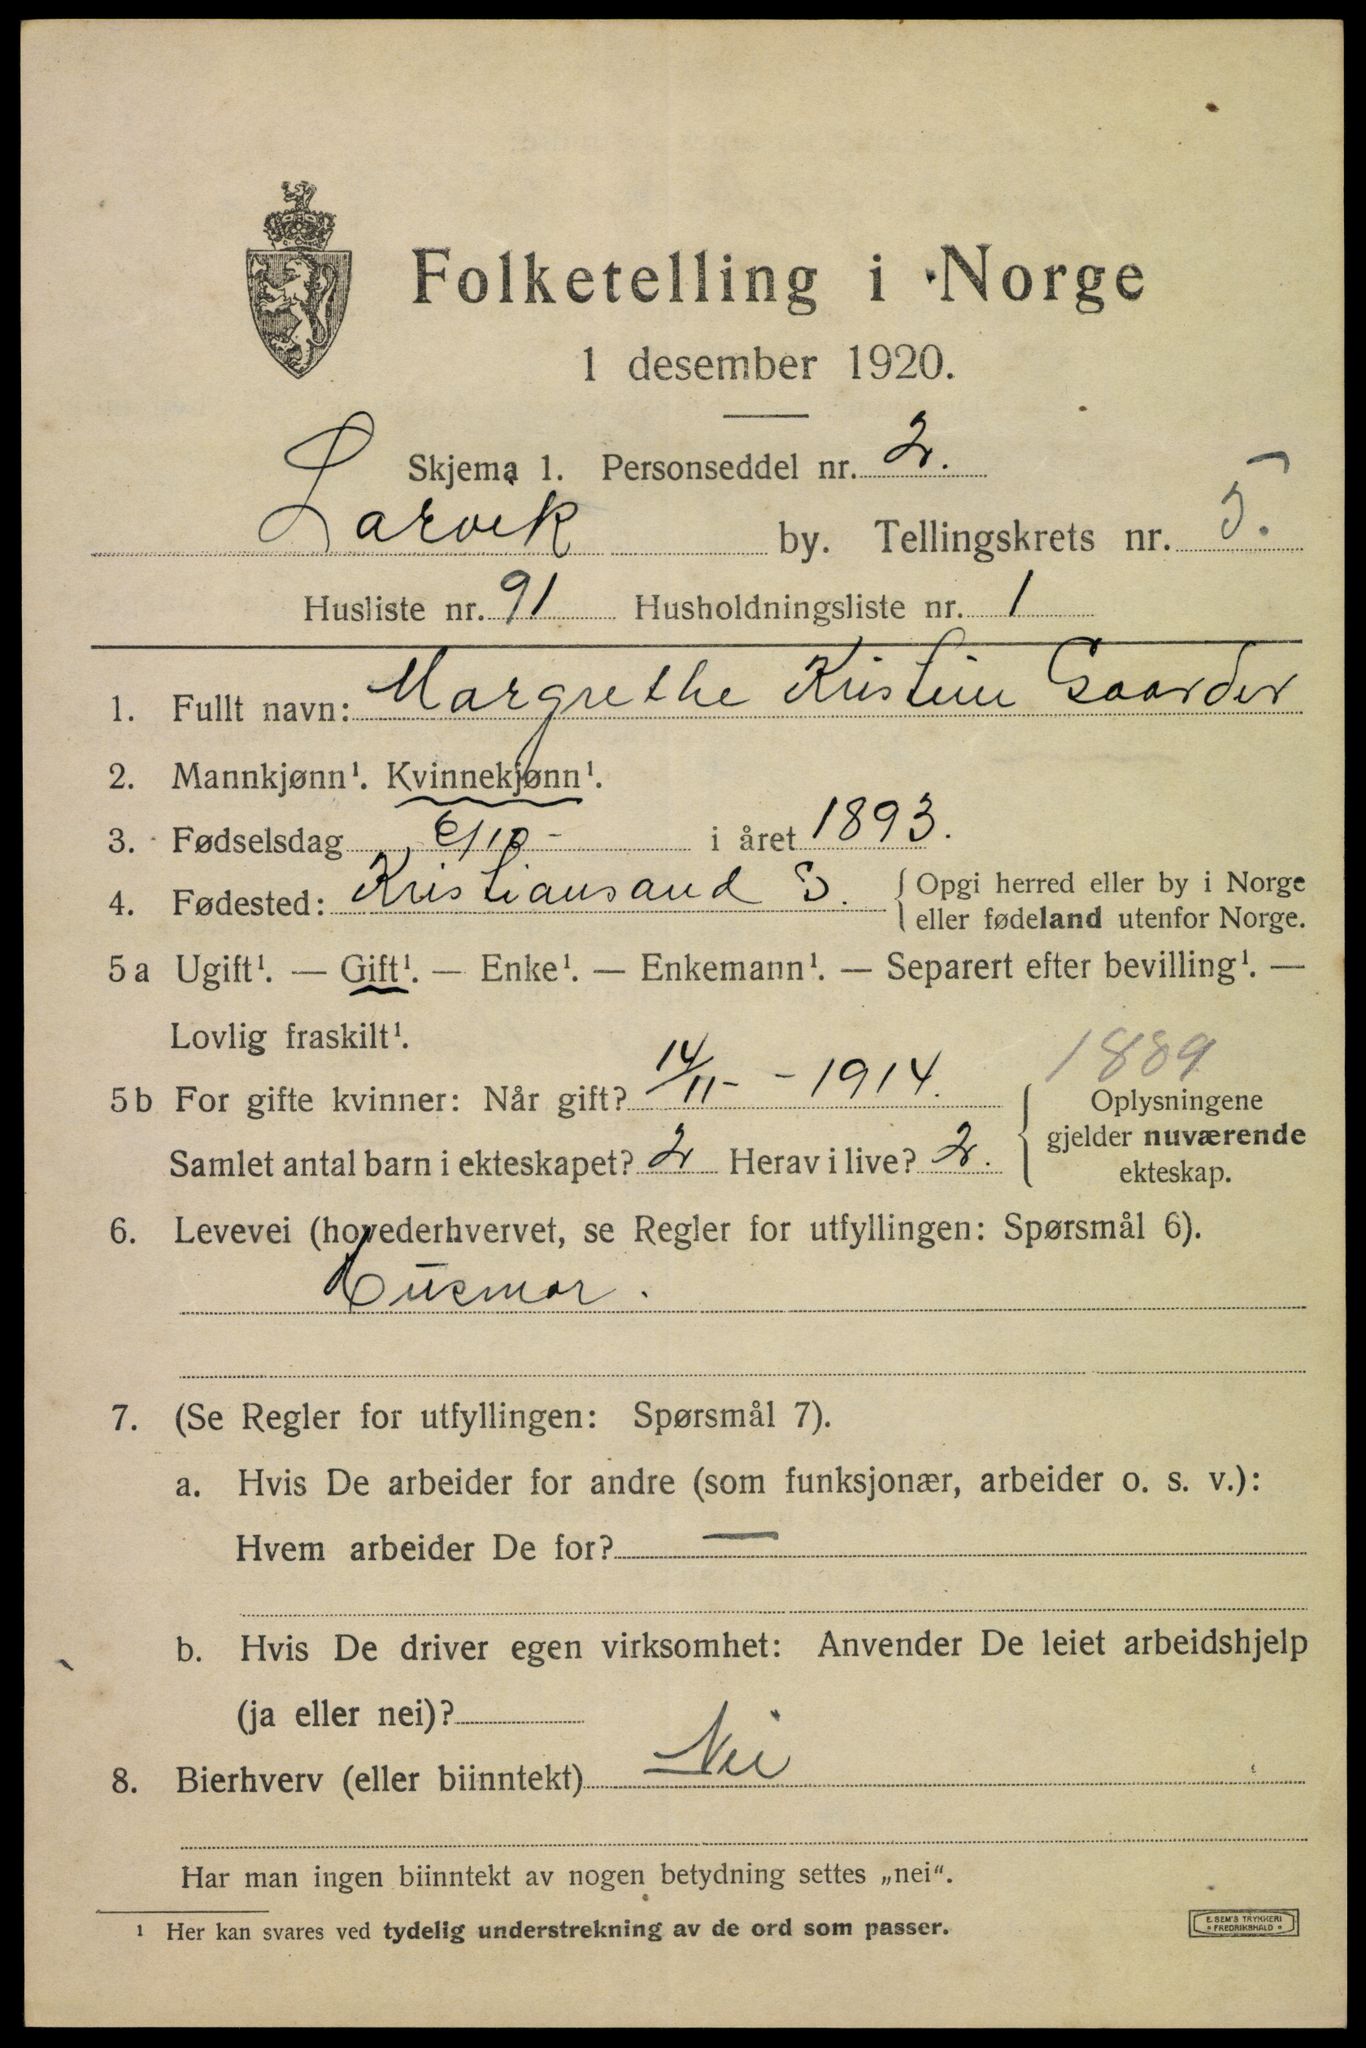 Folketelling i Norge
1 desember 1920.
Skjema 1. Personseddel nr. 2.
Larvik by. Tellingskrets nr. 5.
Husliste nr. 91 Husholdningsliste nr. 1
1. Fullt navn: Margrethe Kristine Gaarder
2. Mannkjønn¹. Kvinnekjønn¹.
3. Fødselsdag 6/10- i året 1893.
4. Fødested: Kristiansand S. { Opgi herred eller by i Norge
eller fødeland utenfor Norge.
5a Ugift¹. — Gift¹. — Enke¹. — Enkemann¹. — Separert efter bevilling¹. —
Lovlig fraskilt¹.
1889
5b For gifte kvinner: Når gift? 14/11- - 1914. { Oplysningene
gjelder nuværende
Samlet antal barn i ekteskapet? 2 Herav i live? 2.
ekteskap.
6. Levevei (hovederhvervet, se Regler for utfyllingen: Spørsmål 6).
Husmor.
7. (Se Regler for utfyllingen: Spørsmål 7).
a. Hvis De arbeider for andre (som funksjonær, arbeider o. s. v.):
Hvem arbeider De for? —
b. Hvis De driver egen virksomhet: Anvender De leiet arbeidshjelp
(ja eller nei)?
8. Bierhverv (eller biinntekt) Nei
Har man ingen biinntekt av nogen betydning settes „nei“.
¹ Her kan svares ved tydelig understrekning av de ord som passer.
E. SEM'S TRYKKERI
FREDRIKSHALD